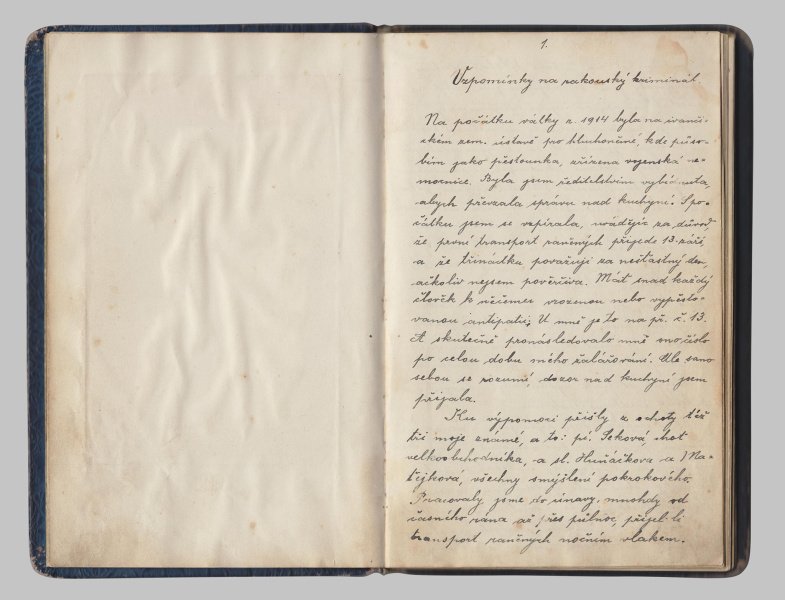 1.
Vzpomínky na rakouský kriminál.
Na počátku války r. 1914 byla na ivanči-
ckém zem. ústavě pro hluchoněmé, kde půso-
bím jako pěstounka, zřízena vojenská ne-
mocnice. Byla jsem ředitelstvím vybídnuta,
abych převzala správu nad kuchyní. Spo-
čátku jsem se vzpírala, uvádějíc za důvod,
že první transport raněných přijede 13. září,
a že třináctku považuji za nešťastný den,
ačkoliv nejsem pověrčiva. Máť snad každý
člověk k něčemu vrozenou nebo vypěsto-
vanou antipatii; U mně je to na př. č. 13.
A skutečně pronásledovalo mně ono číslo
po celou dobu mého žalářování. Ale samo
sebou se rozumí, dozor nad kuchyní jsem
přijala.
Ku výpomoci přišly z ochoty též
tři moje známé, a to: pí. Seková chot
velkoobchodníka, a sl. Huňáčkova a Ma-
tějková, všechny smýšlení pokrokového.
Pracovaly jsme do únavy, mnohdy od
časného rana až přes půlnoc, přijel-li
transport raněných nočním vlakem.